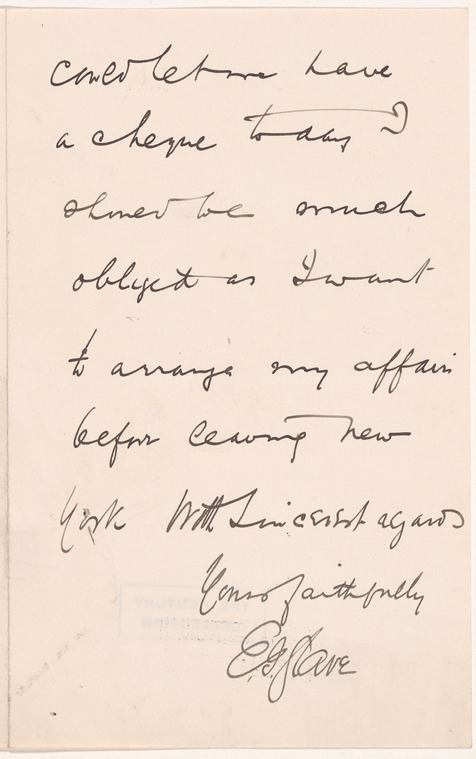 could let me have
a cheque today I
should be much
obliged as I want
to arrange my affairs
before leaving New
York With Sincerest regards
Yours faithfully
E. J. Glave